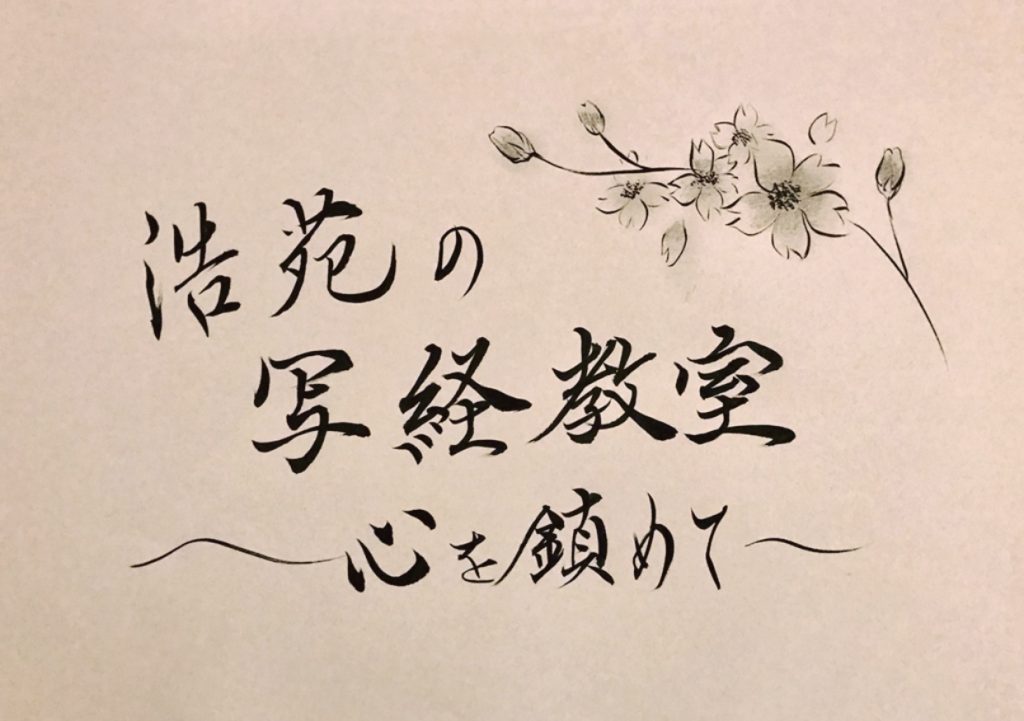 浩苑の
写経教室
〜心を鎮めて〜